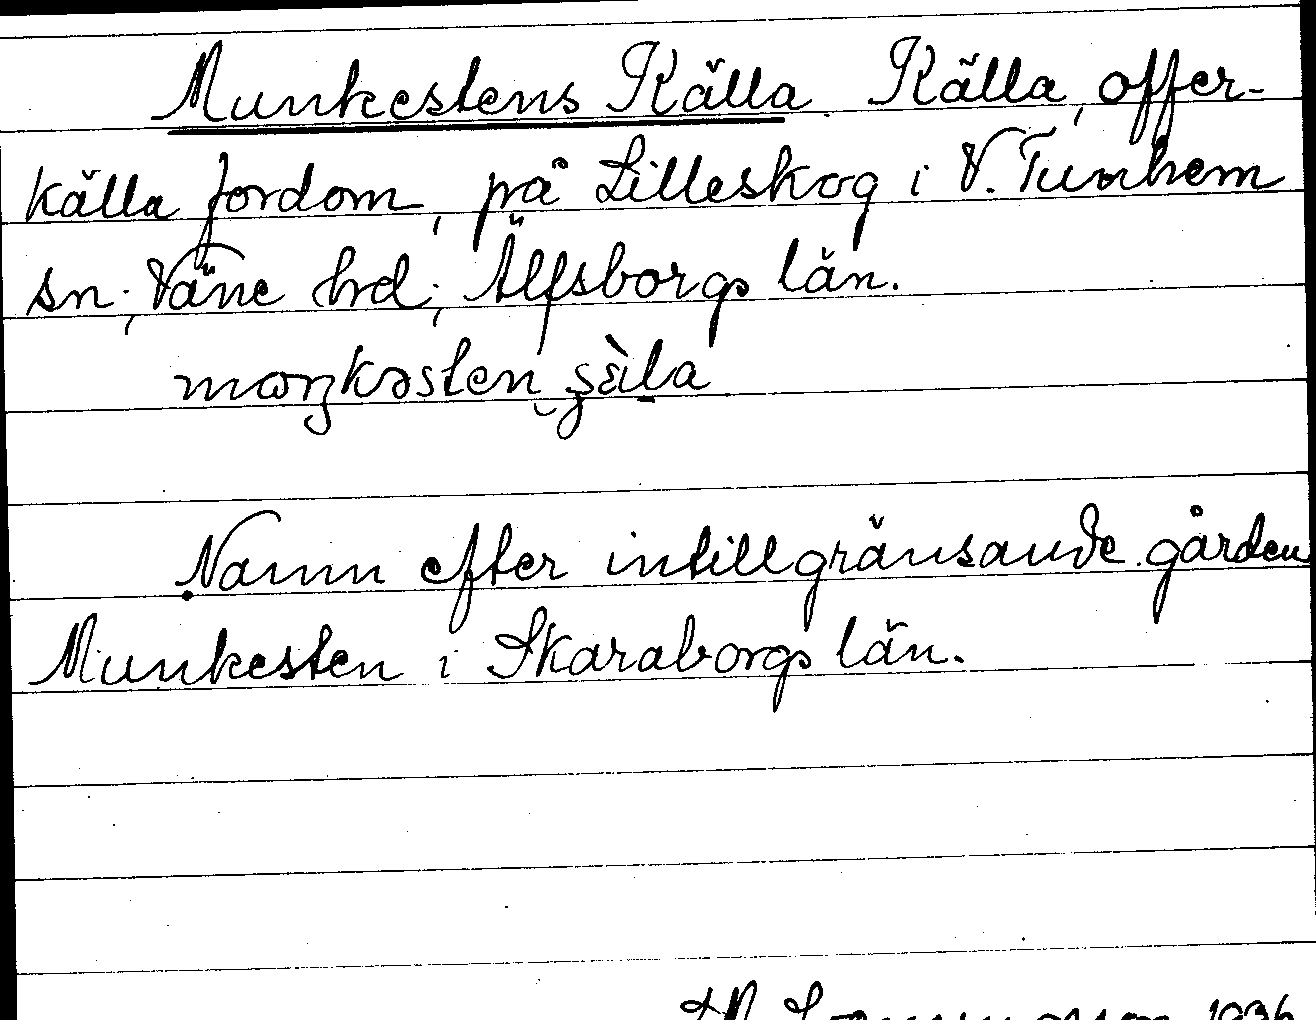 Munkestens Källa Källa, offer-
källa fordom, på Lilleskog i V. Tunhem
sn; Väne hd; Älfsborgs län.
Namn efter intillgränsande gården
Munkesten i Skaraborgs län.
1936